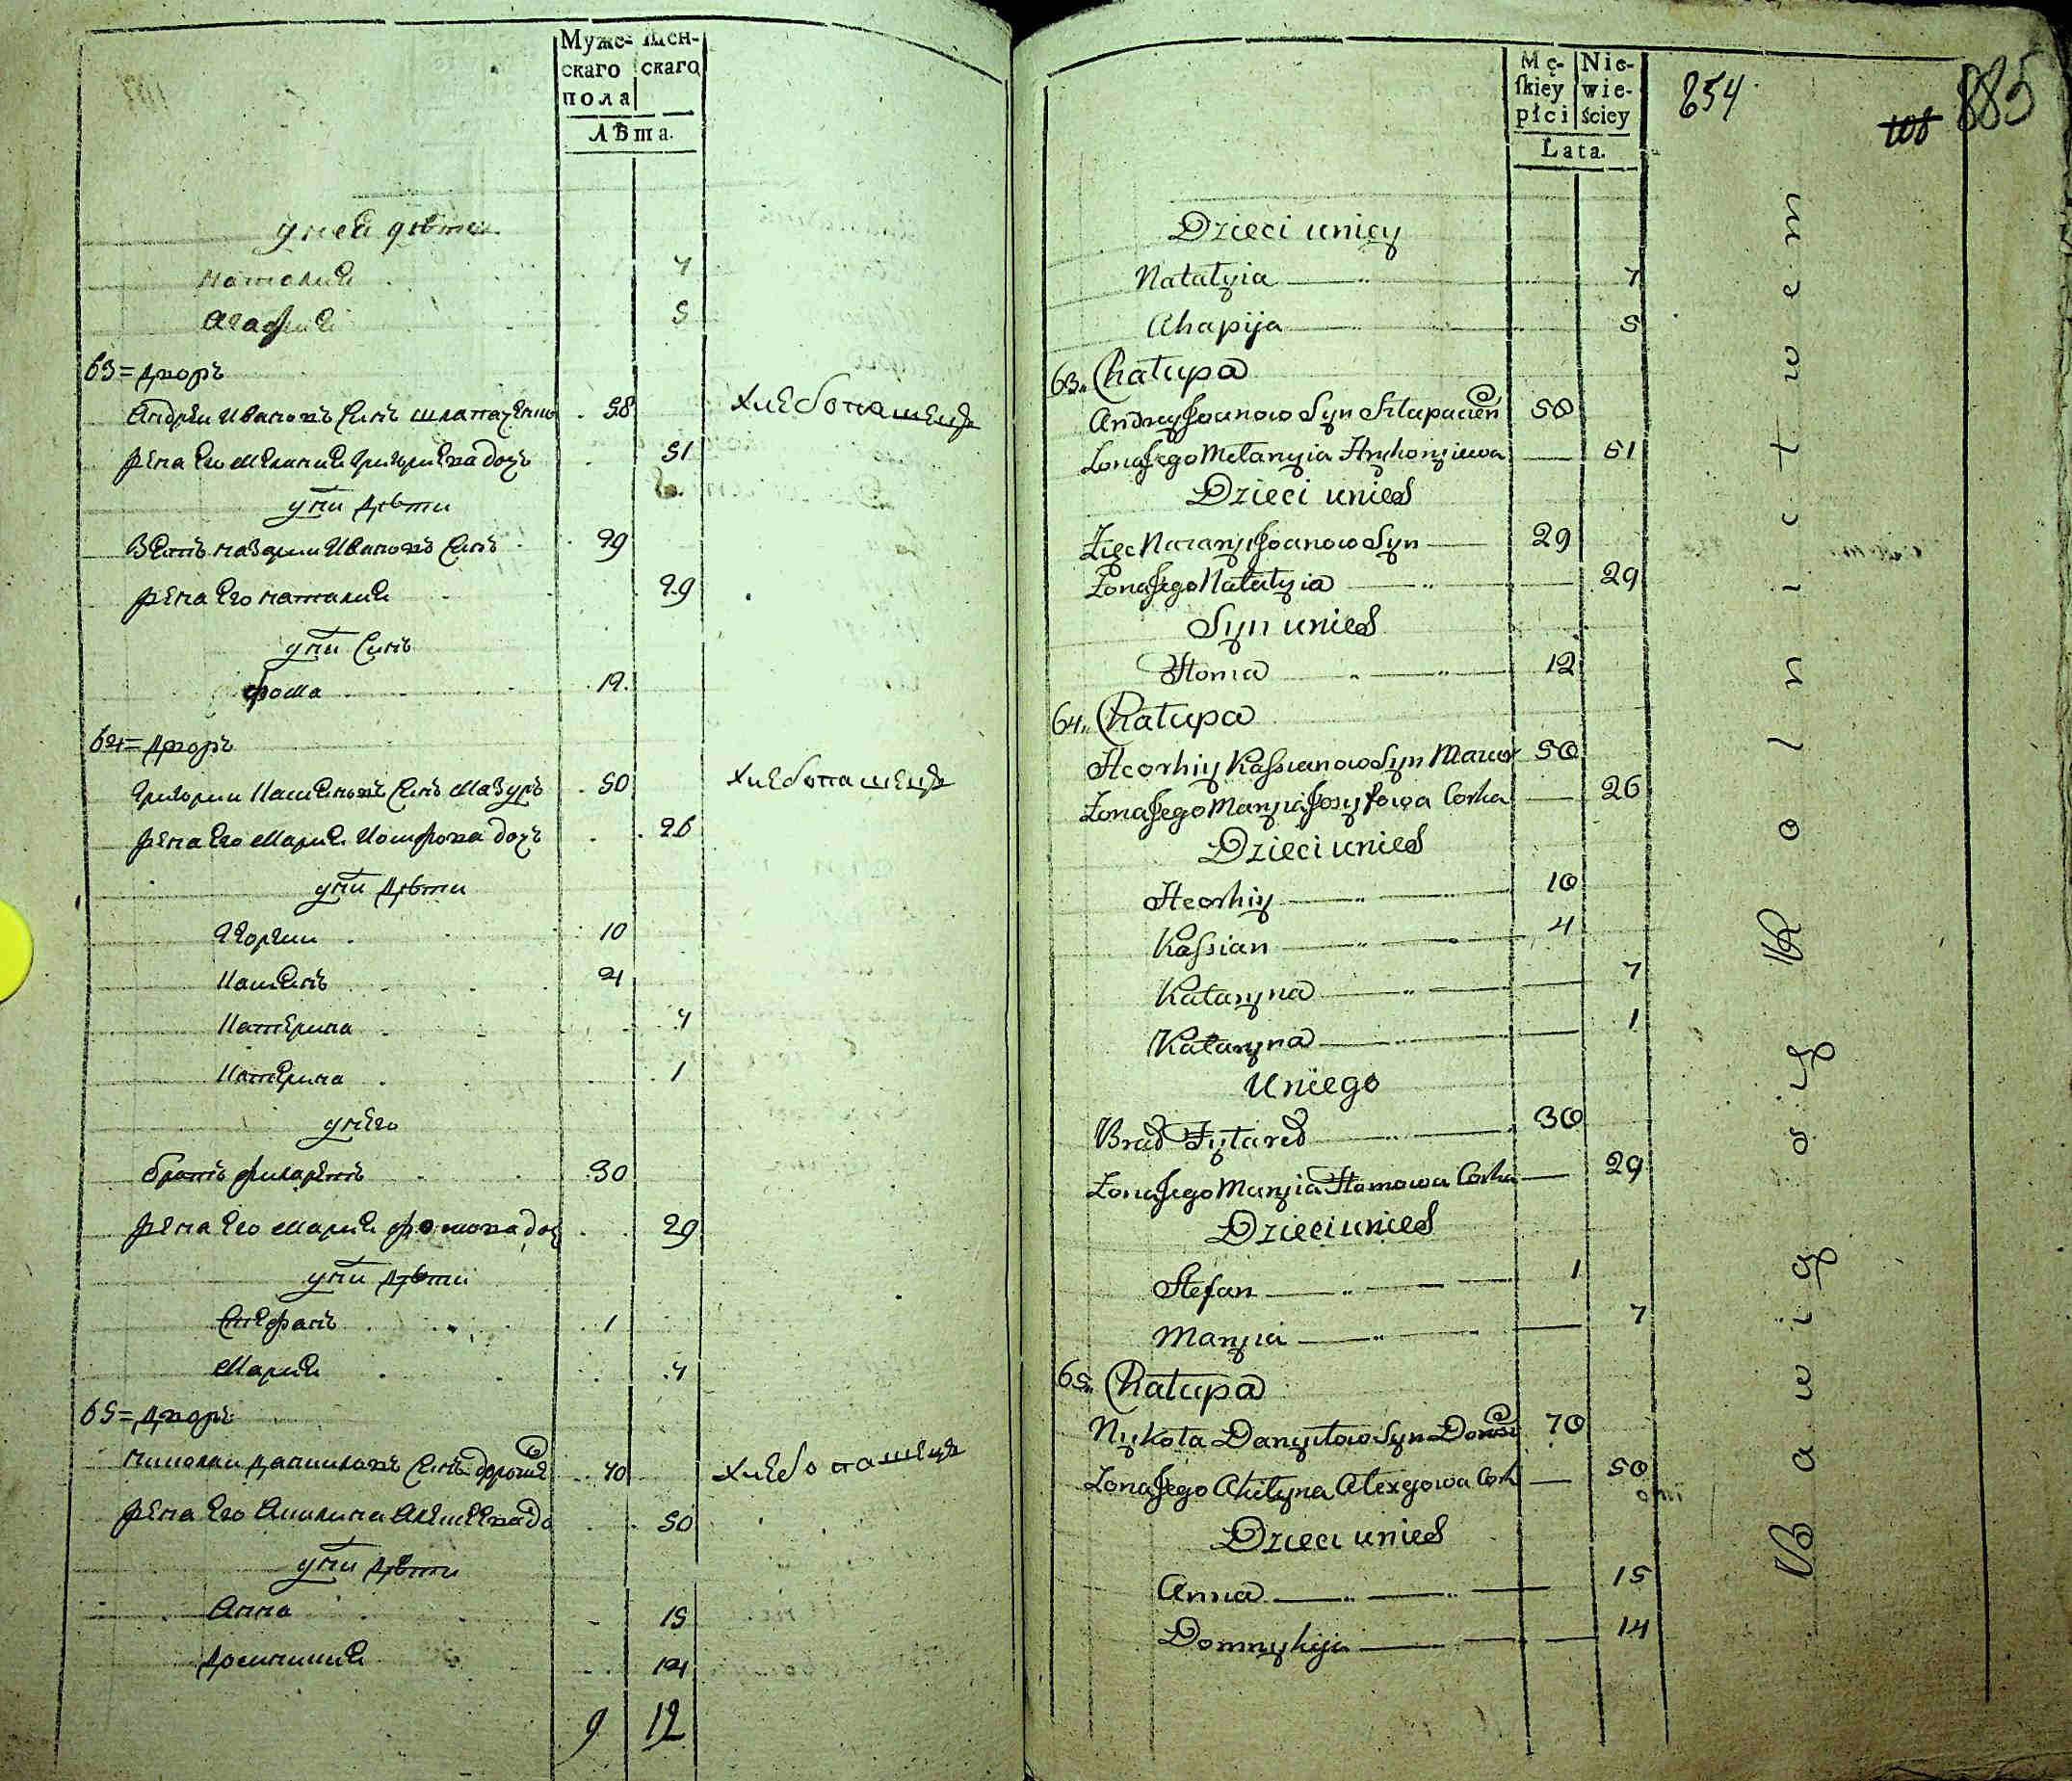 Муже- скаго пола
Жен- скаго
Лѣта.
у нея дѣти
Наталия 7
Агафия 5
63 = дворъ
Андрей Ивановъ синъ 58 хлебопашецъ
жена его Мелания Григориева дочь 51
у них дѣти
Зять Назарий Ивановъ синъ 29
жена его Наталия 29
у них синъ
Фома 12
64 = дворъ
Григорий синъ Мазуръ 50 хлебопашецъ
жена его Мария Иосифова дочь 26
у них дѣти
Георгий 10
Касиянъ 4
Катерина 7
Катерина 1
у него
братъ Филаретъ 30
жена его Мария Фомова доч 29
у них дѣти
Стефанъ 1
Мария 7
65 = дворъ
Николай Даниловъ синъ 70 хлебопашецъ
жена его Акилина Алексеева до 50
у них дѣти
Анна 15
Доминикия 14
9 12
Mę- skiey płci
Nie- wie- ściey
Lata.
854
108 885
Dzieci unicy
Natalyia 7
Ahapija 5
63. Chałupa
Andrey Joanow Syn Szlapacien 58
Żona Jego Melanyia Hryhoryiewa 51
Dzieci unich
Zięc Nazaryi Joanow Syn 29
Żona Jego Natalyia 29
Syn unich
Homa 12
64. Chałupa
Heorhiy Kassianow Syn Mazur 50
Żona Jego Maryia Jozyfowa Corka 26
Dzieci unich
Heorhiy 10
Kassian 4
Kataryna 7
Kataryna 1
Uniego
Brad Fylared 30
Żona Jego Maryia Homowa Corka 29
Dzieci unich
Stefan 1
Maryia 7
65. Chałupa
Nykoła Danyłow Syn 70
Żona Jego Akilyna Alexyowa Cork 50
Dzieci unich
Anna 15
Domnykija 14
Bawią się Rolnictwem